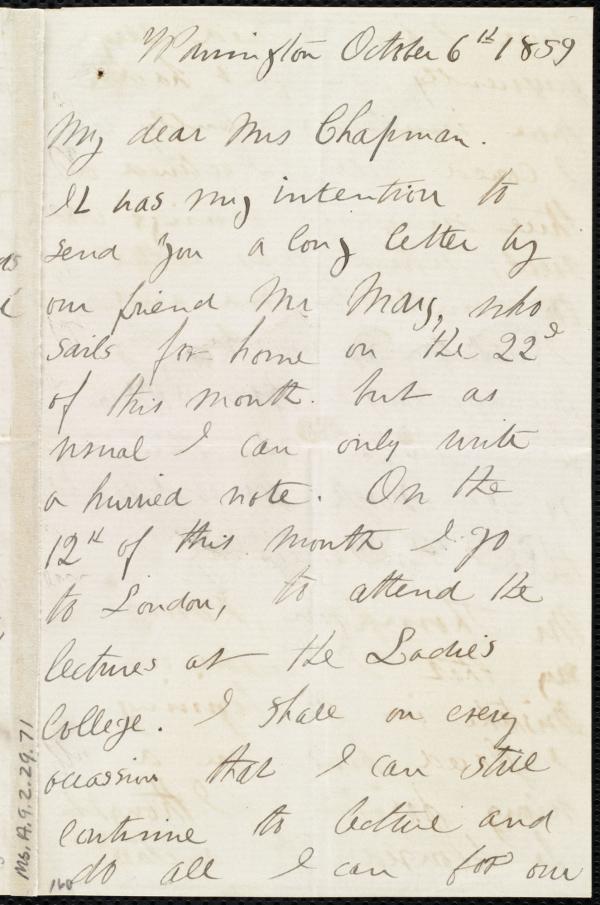 Warrington October 6th 1859
My dear Mrs Chapman.
It was my intention to
send you a long letter by
our friend Mr May, who
sails for home on the 22d
of this month. but as
usual I can only write
a hurried note. On the
12th of this month I go
to London, to attend the
lectures at the Ladies
College. I shall on every
occassion that I can still
continue to lecture and
do all I can for our
Ms. A. 9. 2. 29. 71
160